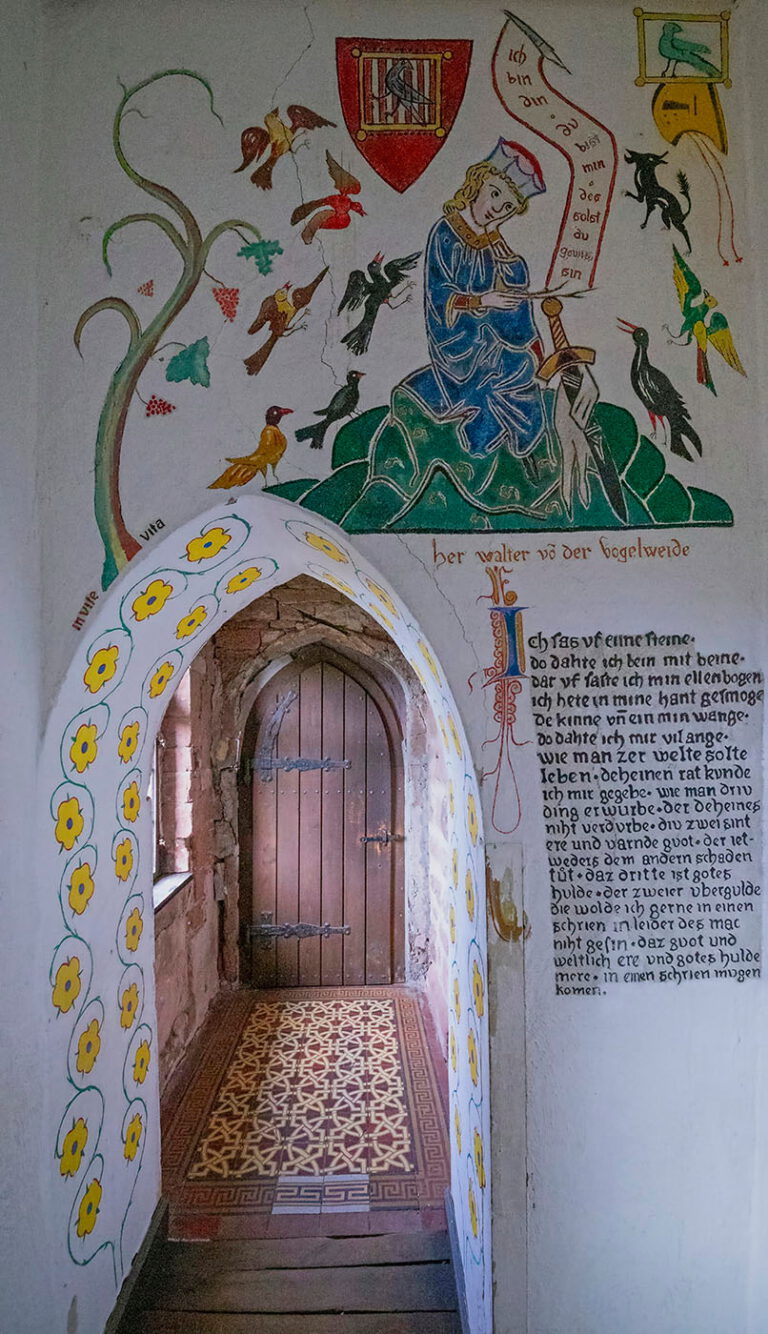 ich
bin
din · du
bist
min
des
solst
du
gewis
sin
in vite
vita
her walter vō der vogelweide
Ich sas vf eime steine·
do dahte ich bein mit beine·
dar vf saste ich min ellenbogen
ich hete in mine hant gesmoge
de kinne vn̄ ein min wange·
do dahte ich mir vil ange·
wie man zer welte solte
leben· deheinen rat kvnde
ich mir gegebe· wie man driv
ding erwurbe· der deheines
niht verdvrbe· div zwei sint
ere und varnde gvot· der iet-
weders dem andern schaden
tůt· daz dritte ist gotes
hulde· der zweier vbergulde
die wolde ich gerne in einen
schrien in leider des mac
niht gesin· daz gvot und
weltlich ere vnd gotes hulde
mere· in einen schrien mvgen
komen.